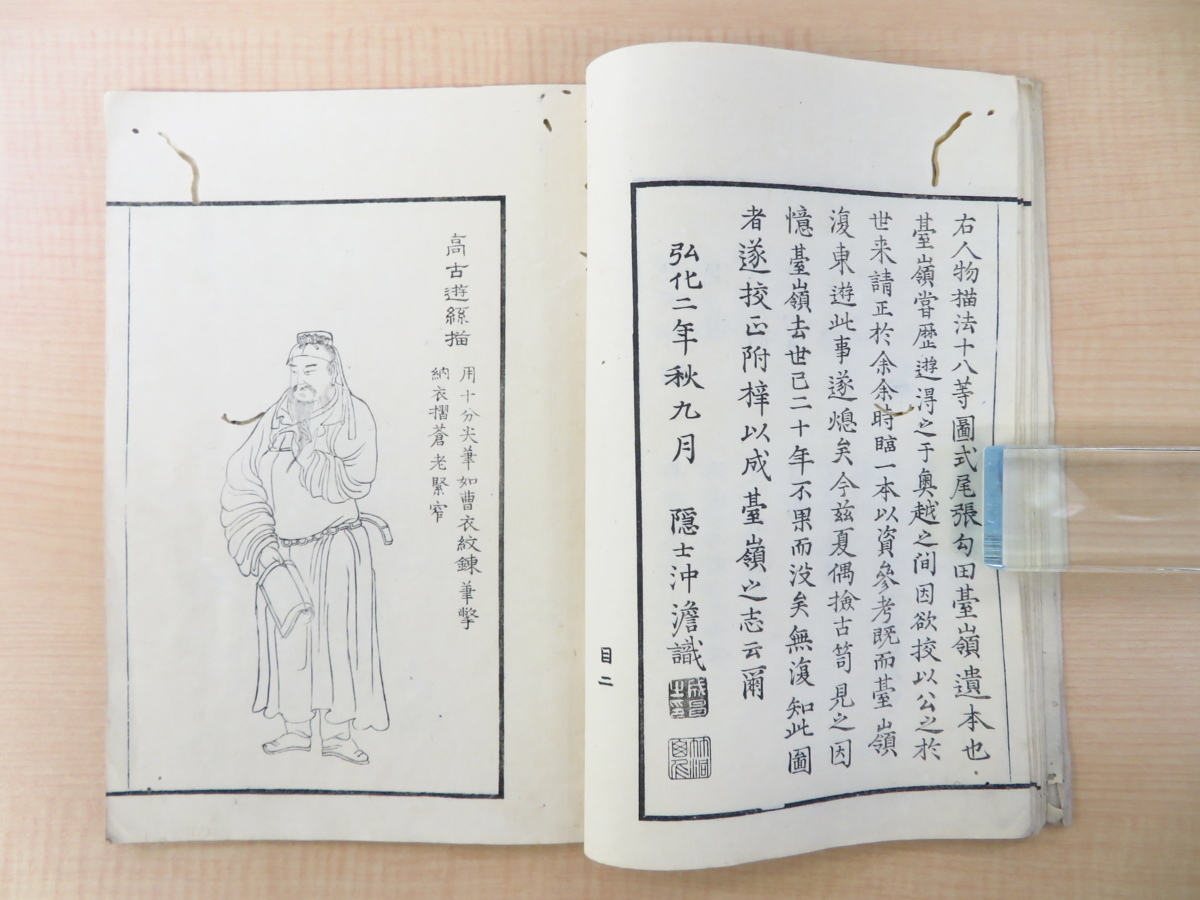 右人物描法十八等圖式尾張勾田䑓嶺遺本也
䑓嶺嘗歴遊淂之于奥越之间因欲挍以公之於
世来請正於余余時臨一本以資參考既而䑓嶺
復東遊此事遂熄矣今兹夏偶撿古笥見之因
憶䑓嶺去世已二十年不果而没矣無復知此圖
者遂挍正附梓以成䑓嶺之志云爾
弘化二年秋九月 隠士沖澹識
目二
高古遊絲描
用十分尖筆如曹衣紋鍊筆撆
納衣摺蒼老緊窄